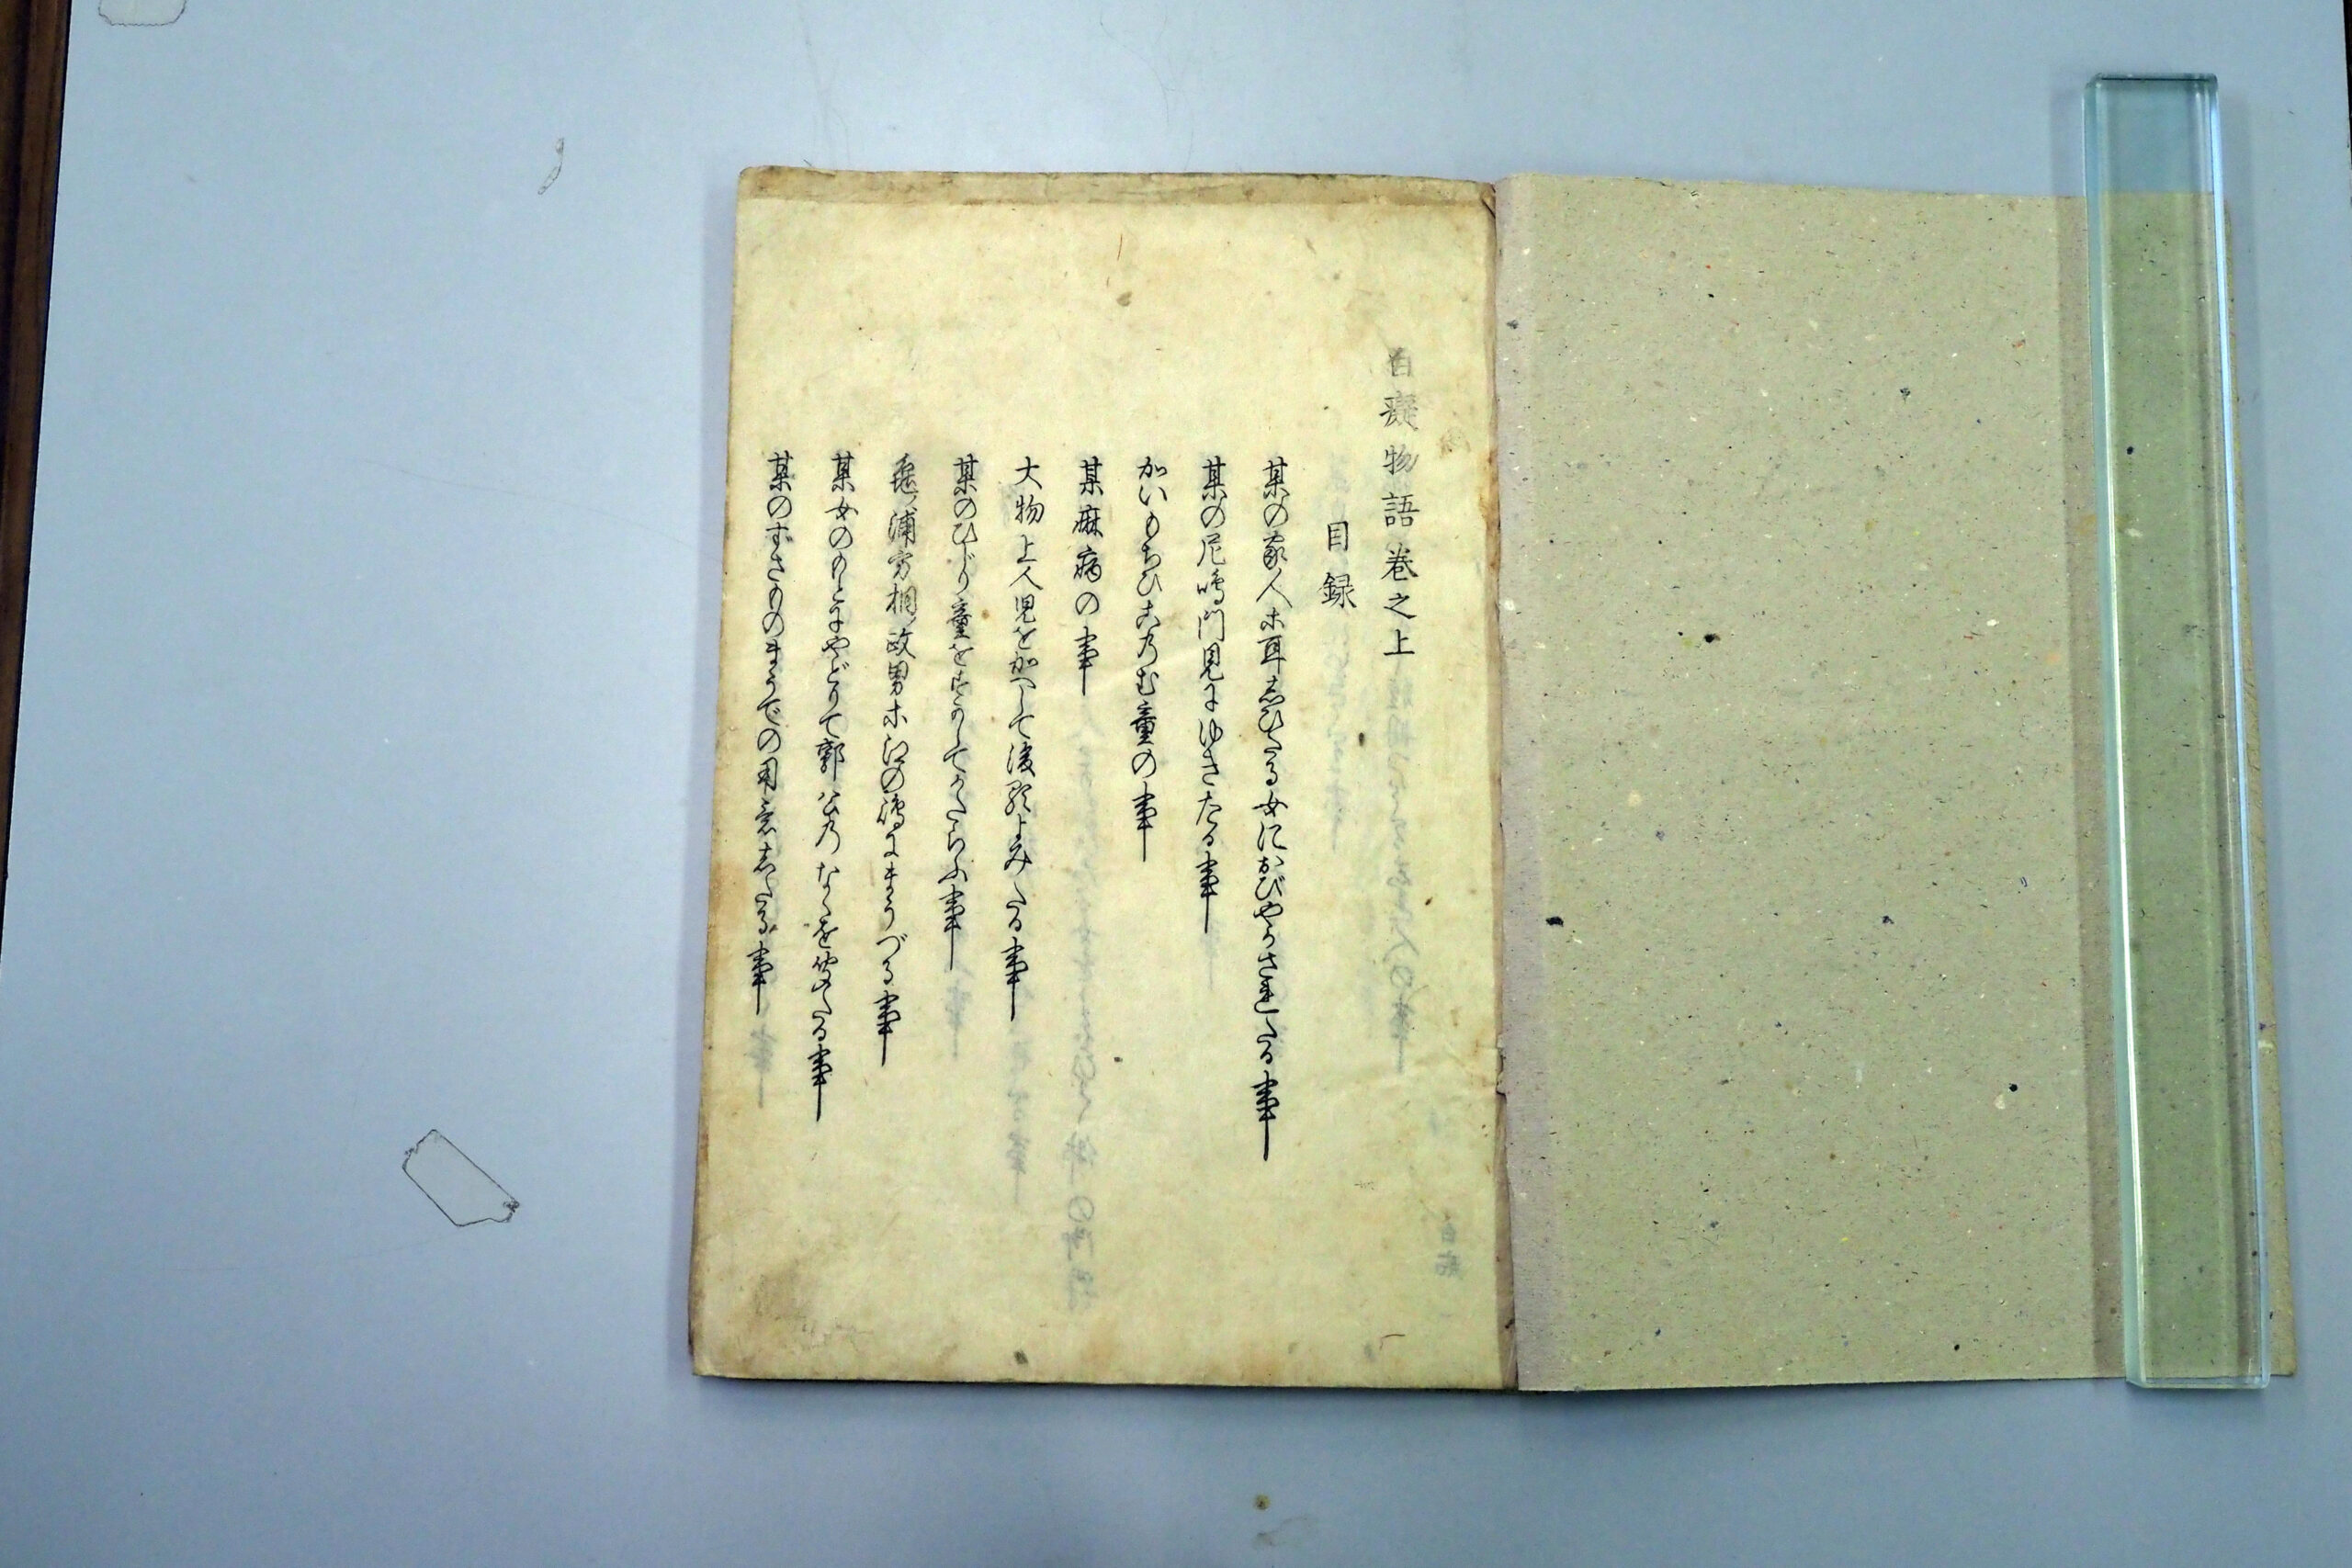 白癡物語巻之上
目録
某の家人木耳志ひたる女におびやかされたる事
某の尼鳴門見にゆきたる事
かいもちひこのむ童の事
某麻病の事
大物上人児をかへして後歌よみたる事
某のひじり童をすかしてかたらふ事
浦 男 の嶋にまうづる事
某女のもとにやどりて郭公の なくを たる事
某のずさものまうでの用意志たる事